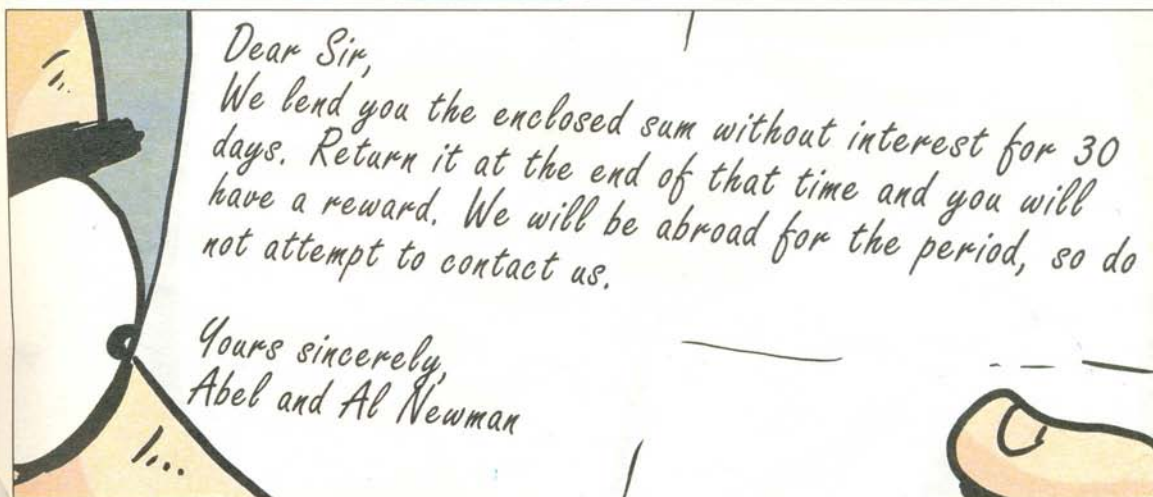 Dear Sir,
We lend you the enclosed sum without interest for 30
days. Return it at the end of that time and you will
have a reward. We will be abroad for the period, so do
not attempt to contact us.
Yours sincerely,
Abel and Al Newman